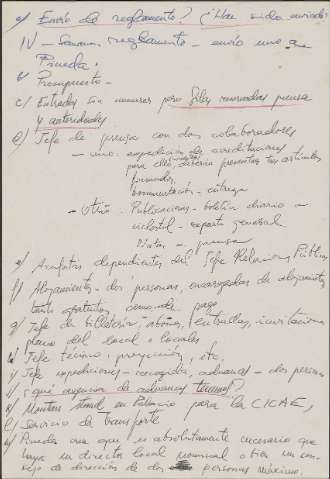 a/ Envío del reglamento? ¿Han sido enviados?
IV - reglamento - envío uno a
Pineda.
b/ Presupuesto -
c/ Entradas sin numerar para filas reservadas prensa
y autoridades.
d/ Jefe de prensa con dos colaboradores
- uno: expedición de acreditaciones
para ello debería presentar sus artículos
firmados
documentación - entrega
- Otro. Publicaciones - boletín diario -
ciclostil - reparto general
prensa
e/ Azafatas dependientes del Jefe Relaciones Públicas
f/ Alojamientos - dos personas, encargadas de alojamientos
tanto gratuitos, como de pago
g/ Jefe de billetería - abonos, entradas, invitaciones
plano del local o locales
h/ Jefe técnico, proyección, etc.
i/ Jefe expediciones - recogida, aduanas - dos personas
j/ ¿qué agencia de aduanas tenemos?
k/ Montar stand en Palacio para la CICAE,
l/ Servicio de transporte
Pineda cree que es absolutamente necesario que
haya un director local nominal o bien un con-
sejo de dirección de dos personas máximo.